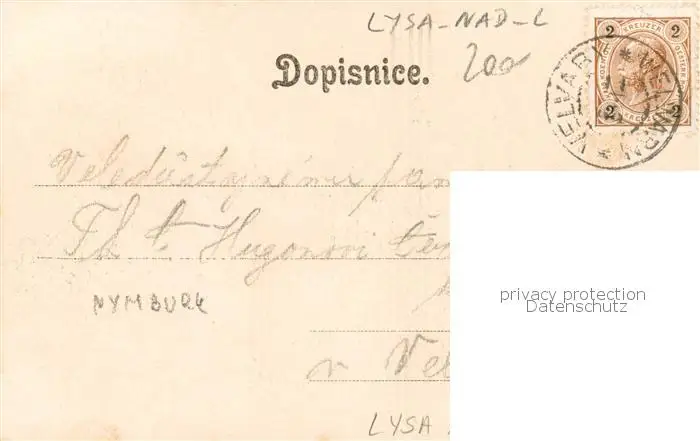 LYSA-NAD-L
200
Dopisnice.
2 KREUZER 2
2 2
VELVARY * WELWARN *
Veledůstojnému pan
Th. C. Hugonovi
privacy protection
NYMBURK
Datenschutz
v Vel
LYSA